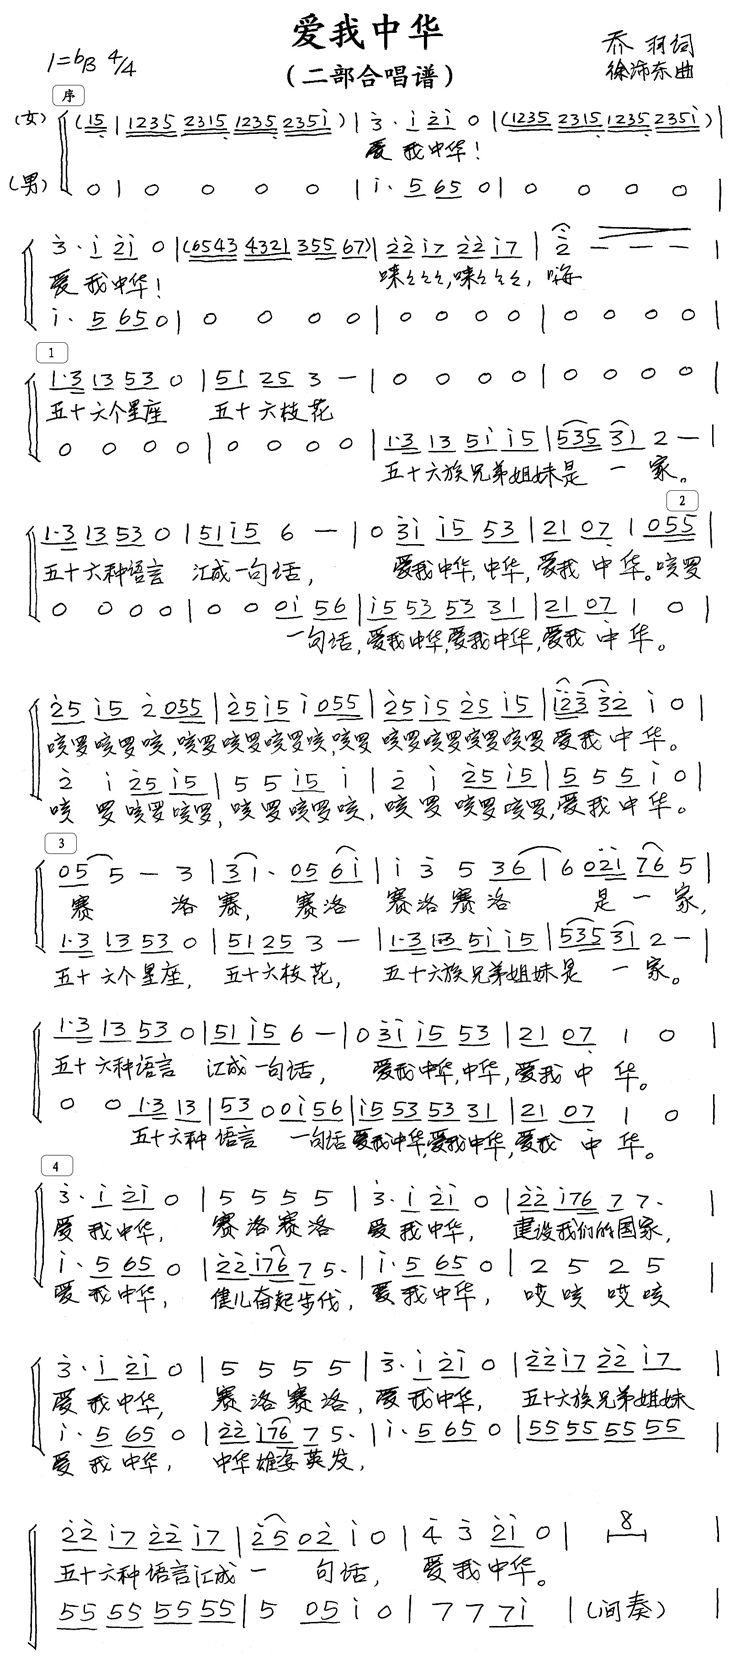 爱我中华
(二部合唱谱)
1=♭B 4/4
乔羽词
徐沛东曲
序
(女) (15 | 1235 2315 1235 2351) | 3· 1 21 0 | (1235 2315 1235 2351) |
爱我中华!
(男) 0 | 0 0 0 0 | 1· 5 65 0 | 0 0 0 0 |
3· 1 21 0 | (6543 4321 355 67) | 22 17 22 17 | 2 — — — |
爱我中华! 嗨
1· 5 65 0 | 0 0 0 0 | 0 0 0 0 | 0 0 0 0 |
1
1·3 13 53 0 | 51 25 3 — | 0 0 0 0 | 0 0 0 0 |
五十六个星座 五十六枝花
0 0 0 0 | 0 0 0 0 | 1·3 13 51 15 | 535 31 2 — |
五十六族兄弟姐妹是一家。
2
1·3 13 53 0 | 51 15 6 — | 0 31 15 53 | 21 07 1 055 |
五十六种语言 汇成一句话, 爱我中华,中华,爱我中华。咳罗
0 0 0 0 | 0 0 01 56 | 15 53 53 31 | 21 07 1 0 |
一句话,爱我中华,爱我中华,爱我中华。
25 15 2 055 | 25 15 1 055 | 25 15 25 15 | 123 32 1 0 |
咳罗咳罗咳,咳罗咳罗咳罗咳,咳罗咳罗咳罗咳罗咳罗爱我中华。
2 1 25 15 | 5 5 15 1 | 2 1 25 15 | 5 5 5 1 0 |
咳罗咳罗咳罗,咳罗咳罗咳,咳罗咳罗咳罗,爱我中华。
3
05 5 — 3 | 31· 05 61 | 1 3 5 36 | 6 021 76 5 |
赛洛赛,赛洛赛洛赛洛是一家,
1·3 13 53 0 | 51 25 3 — | 1·3 13 51 15 | 535 31 2 — |
五十六个星座,五十六枝花,五十六族兄弟姐妹是一家。
1·3 13 53 0 | 51 15 6 — | 0 31 15 53 | 21 07 1 0 |
五十六种语言 汇成一句话,爱我中华,中华,爱我中华。
0 0 1·3 13 | 53 0 01 56 | 15 53 53 31 | 21 07 1 0 |
五十六种语言 一句话 爱我中华,爱我中华,爱我中华。
4
3· 1 21 0 | 5 5 5 5 | 3· 1 21 0 | 22 176 7 7· |
爱我中华,赛洛赛洛 爱我中华,建设我们的国家,
1· 5 65 0 | 22 176 7 5· | 1· 5 65 0 | 2 5 2 5 |
爱我中华,健儿奋起步伐,爱我中华,哎咳哎咳
3· 1 21 0 | 5 5 5 5 | 3· 1 21 0 | 22 17 22 17 |
爱我中华,赛洛赛洛,爱我中华,五十六族兄弟姐妹
1· 5 65 0 | 22 176 7 5· | 1· 5 65 0 | 55 55 55 55 |
爱我中华,中华雄姿英发,
22 17 22 17 | 25 02 1 0 | 4 3 21 0 | 8 |
五十六种语言汇成一句话,爱我中华。
55 55 55 55 | 5 05 1 0 | 7 7 71 | (间奏) |